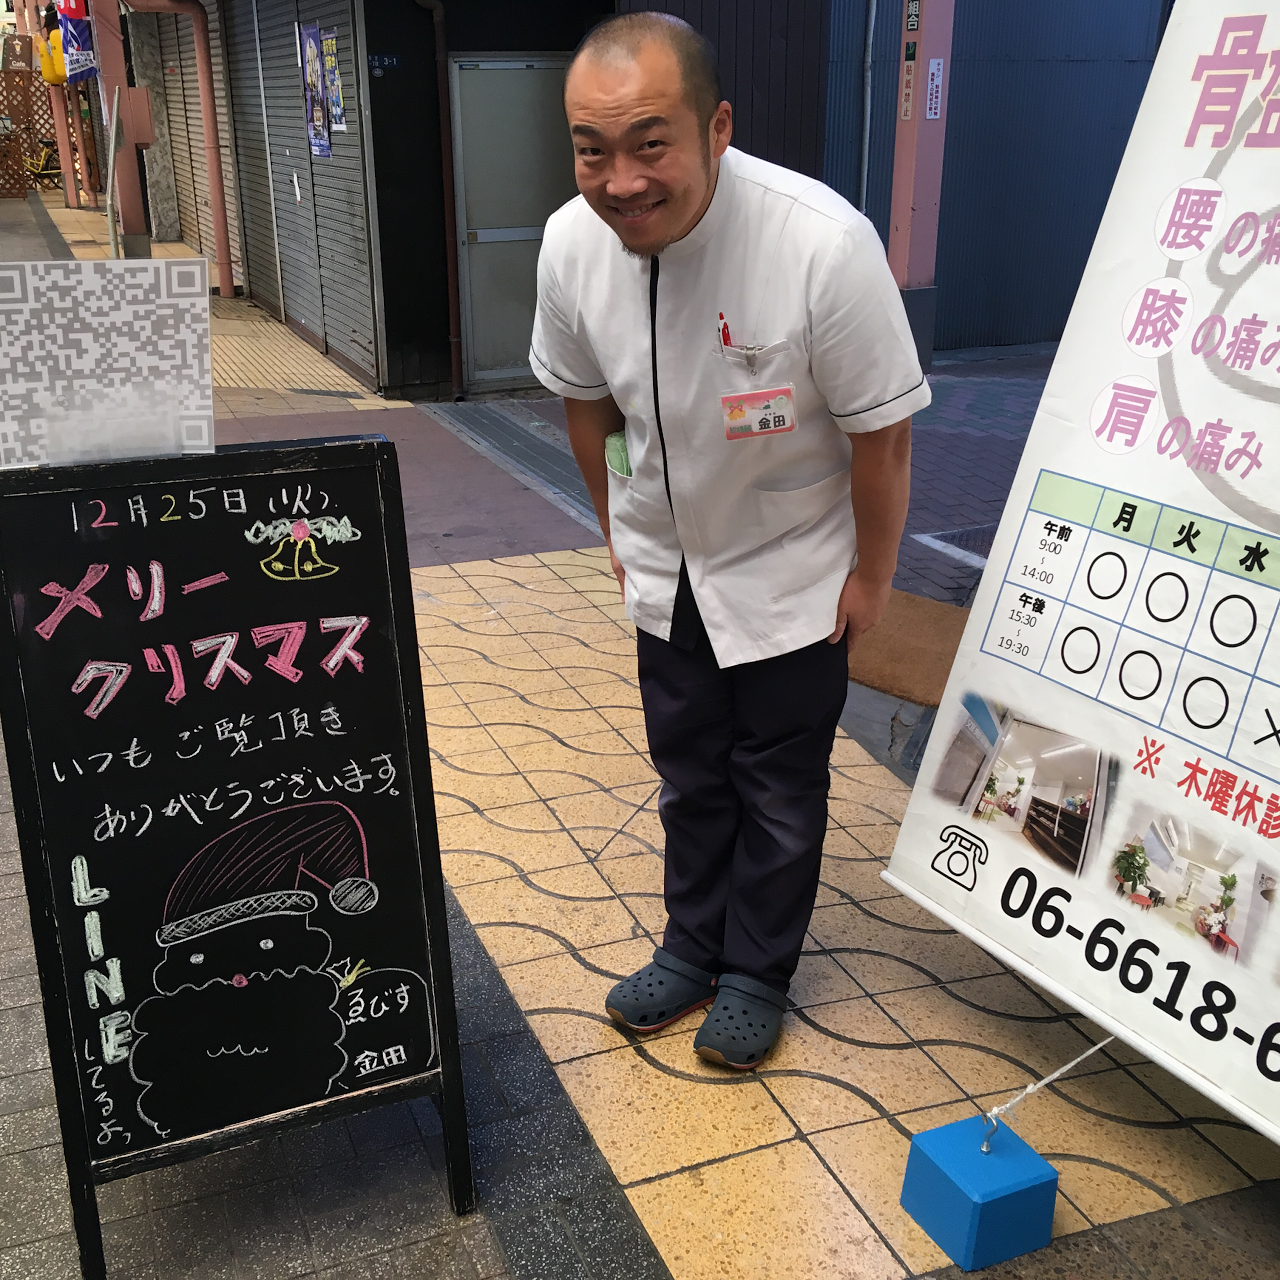 12月25日(火)
メリー
クリスマス
いつも ご覧頂き
ありがとうございます。
LINE
してるよっ
ゑびす
金田
金田
3-1
Cafe
組合
貼紙禁止
骨盤
腰の痛
膝の痛み
肩の痛み
月 火 水
午前
9:00
~
14:00
○ ○ ○
午後
15:30
~
19:30
○ ○ ○ ×
※ 木曜休診
06-6618-6